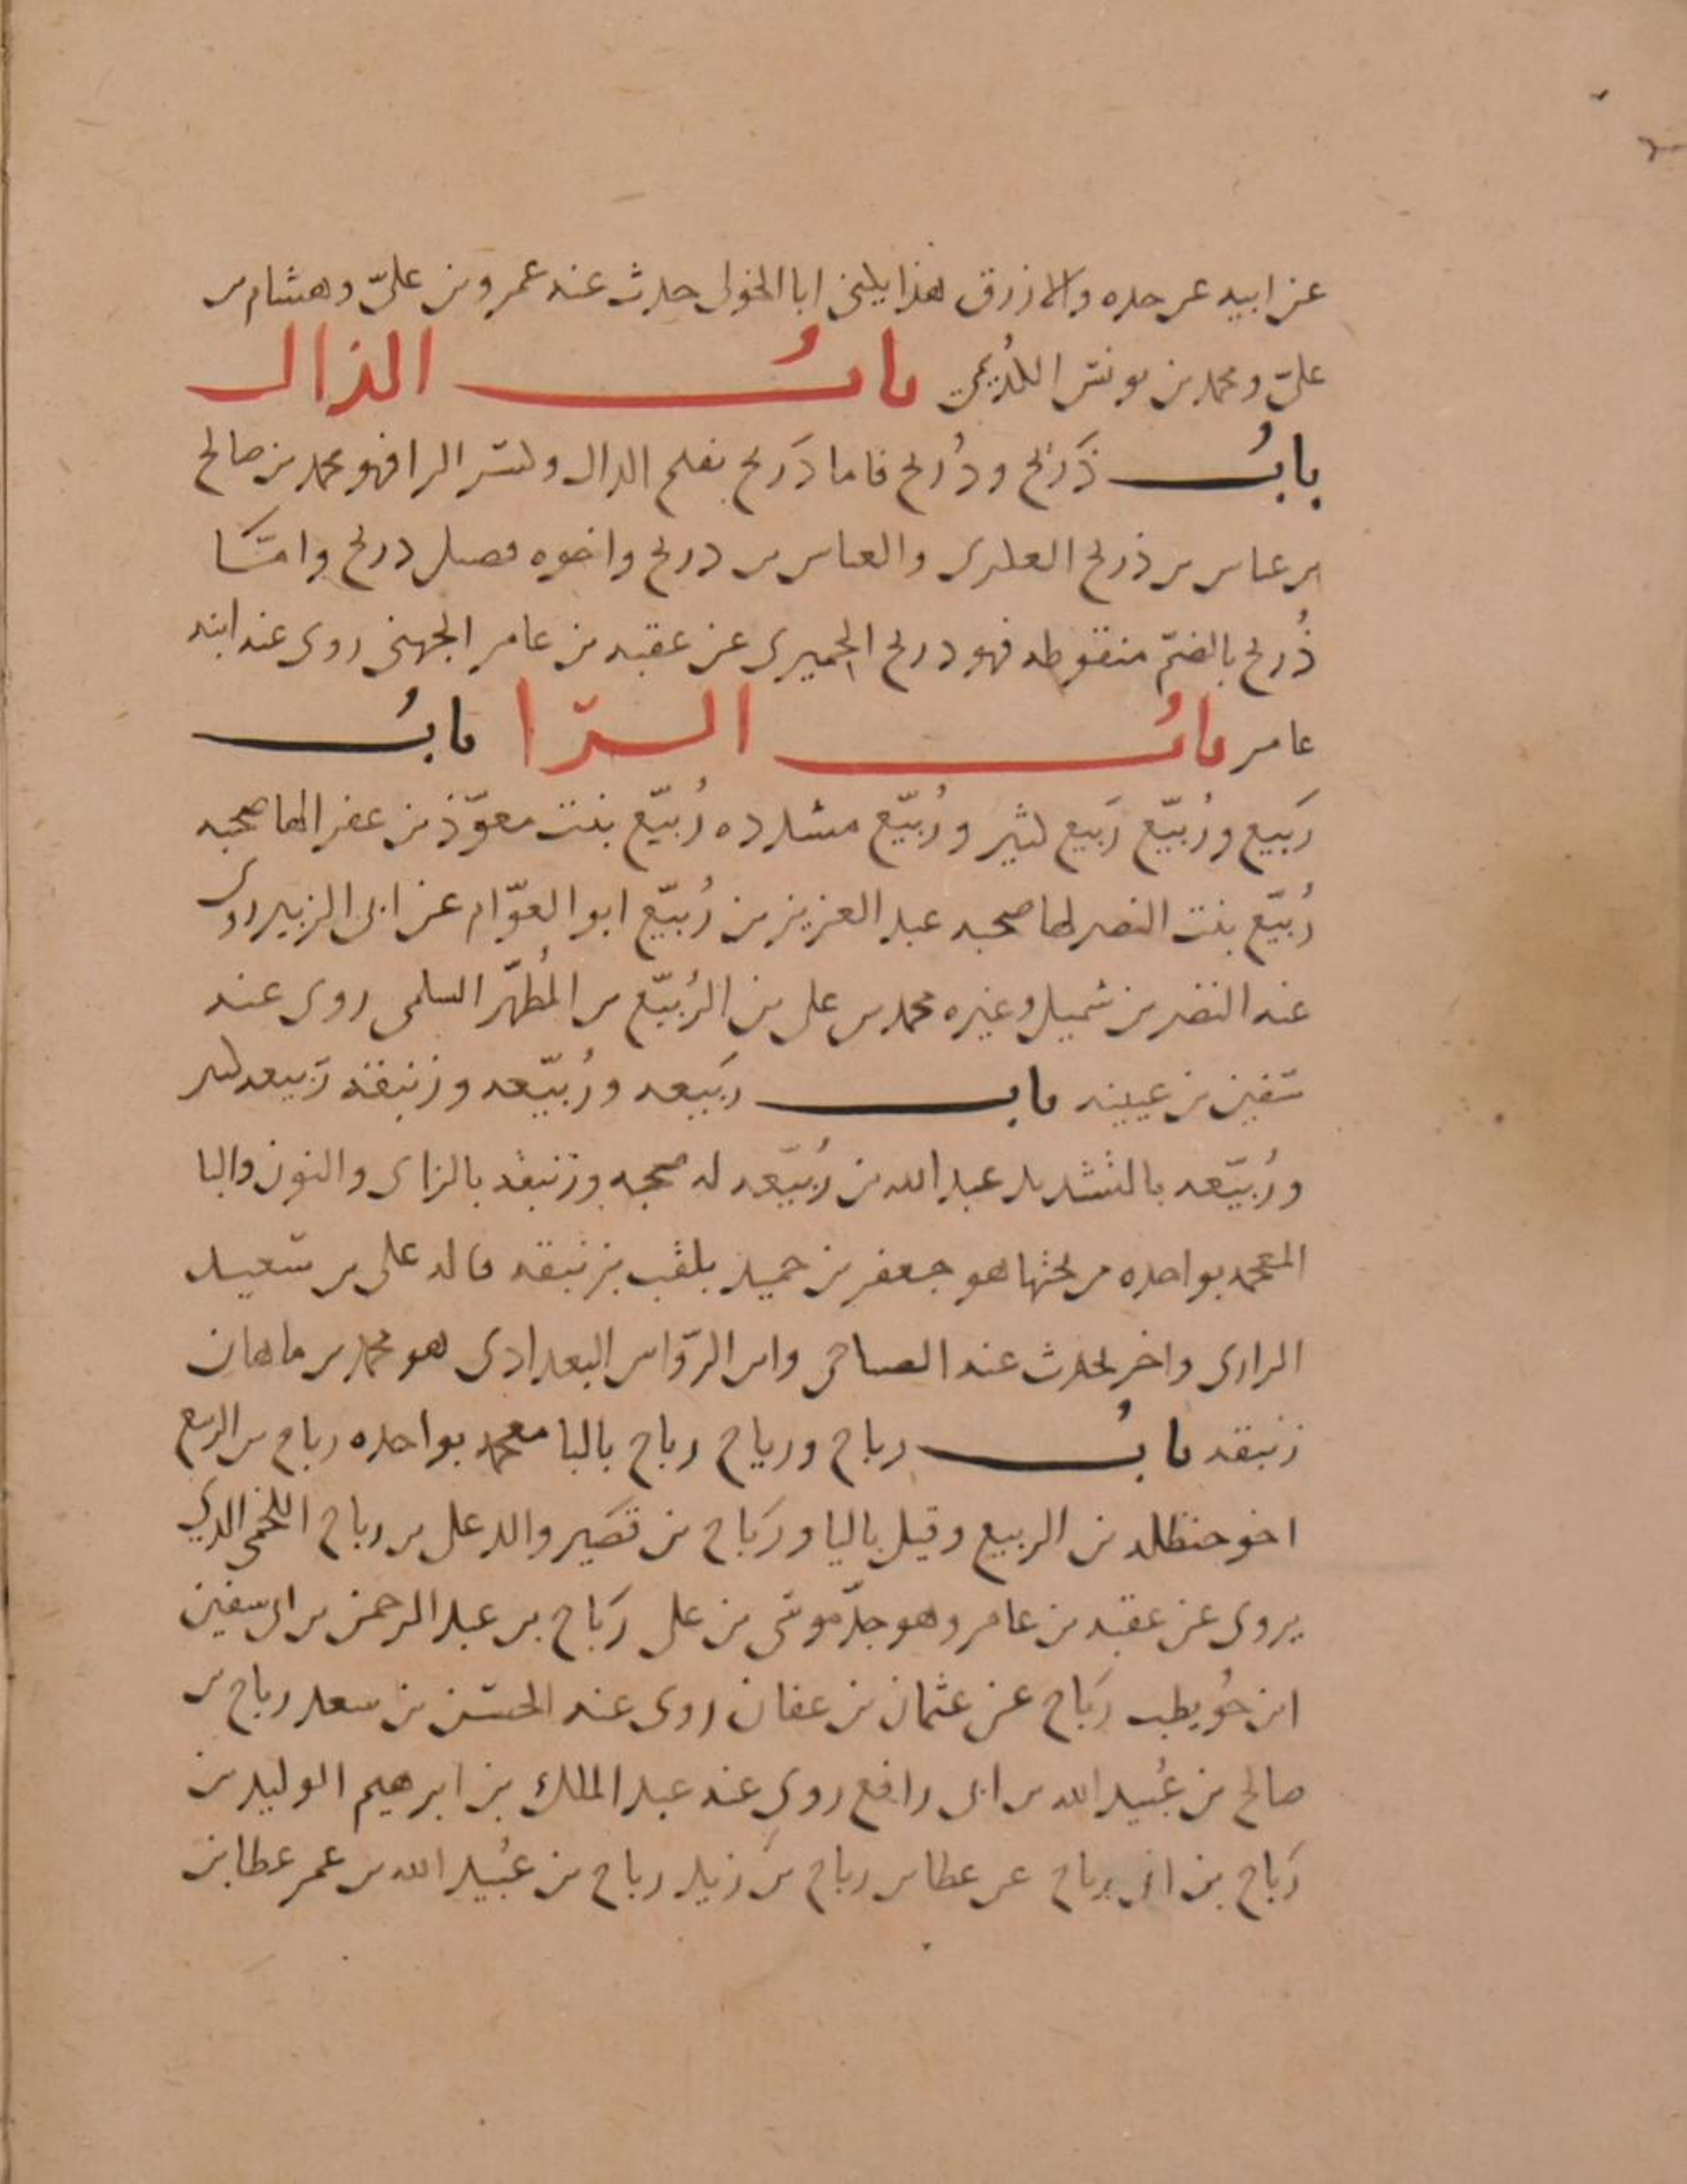 عن ابيه عن جده والازرق هذا يكنى ابا الخول حدث عنه عمرو بن عليّ وهشام بن
عليّ ومحمد بن يونس الكُدَيمي بابُ الذال
بابُ ذَرِيح وذُريح فاما ذَريح بفتح الذال وكسر الرا فهو محمد بن صالح
بن عباس بن ذريح العكبرى والعباس بن ذريح واخوه فضيل ذريح وامّا
ذُريح بالضمّ منقوطه فهو ذريح الحميرى عن عقبه بن عامر الجهنى روى عنه ابنه
عامر بابُ الرّا بابُ
رَبيع ورُبيّع رَبيع كثير ورُبيّع مشدده رُبيّع بنت معوّذ بن عفرا لها صحبه
رُبيّع بنت النضر لها صحبه عبد العزيز بن رُبيّع ابو العوّام عن ابى الزبير روى
عنه النضر بن شميل وغيره محمد بن على بن الرُبيّع بن المُطهّر السلمى روى عنه
سفين بن عيينه باب رَبيعه ورُبيّعه وزنبقه رَبيعه كثير
ورُبيّعه بالتشديد عبد الله بن رُبيّعه له صحبه وزنبقه بالزاى والنون والبا
المعجمه بواحده من تحتها هو جعفر بن حميد يلقب بزنبقه قاله على بن سعيد
الرازى واخر يحدث عنه الصباحى وابن الروّاس البغدادى هو محمد بن ماهان
زنبقه بابُ رباح ورياح رباح بالبا معجمه بواحده رباح بن الربيع
اخو حنظله بن الربيع وقيل باليا ورَبَاح بن قَصَير والد على بن رباح اللخمى الذي
يروى عن عقبه بن عامر وهو جدّ موسى بن على رَبَاح بن عبد الرحمن بن ابى سفين
ابن حُويطب رَبَاح عن عثمان بن عفان روى عنه الحسن بن سعد رباح بن
صالح بن عُبيد الله بن ابى رافع روى عنه عبد الملك بن ابرهيم الوليد بن
رَبَاح بن ابى رباح عن عطا بن رباح بن زيد رباح بن عُبيد الله بن عمر عطا بن